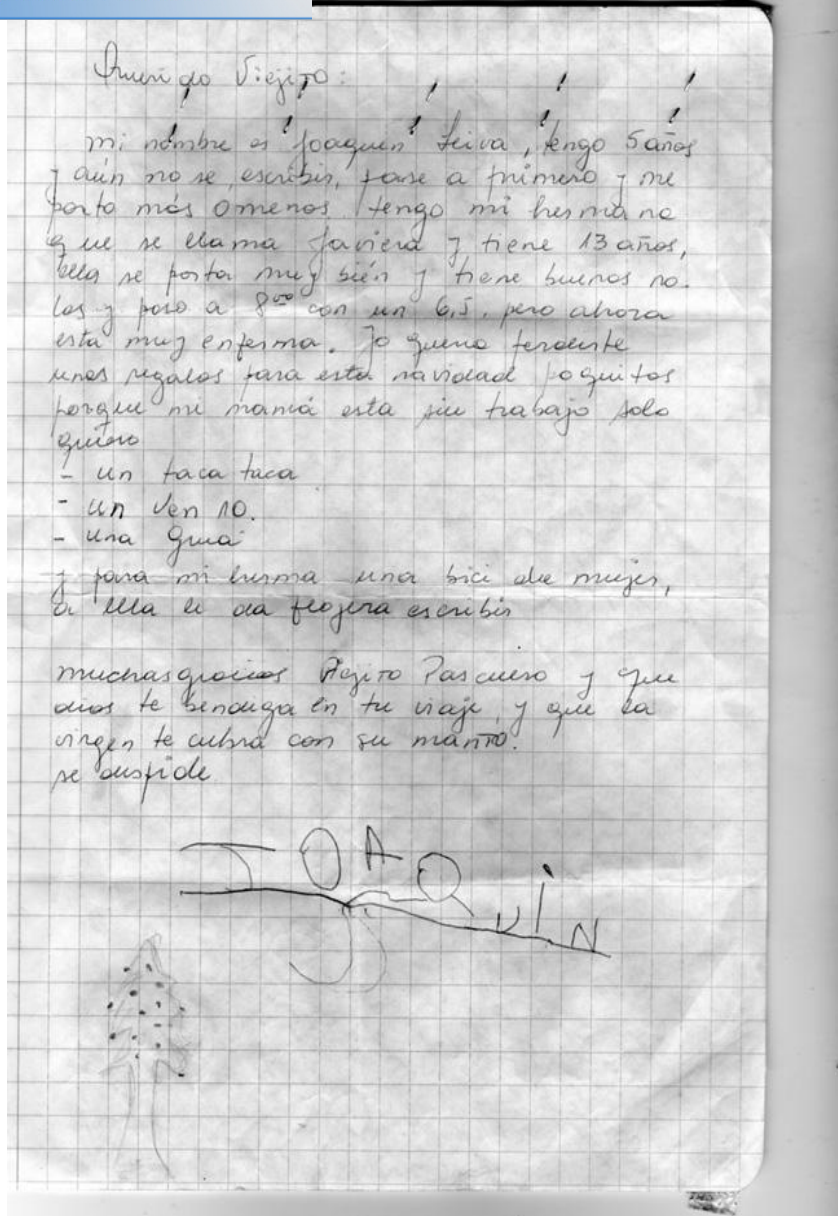 Querido Viejito:
mi nombre es Joaquin Leiva, tengo 5 años
y aún no se escribir, pase a primero y me
porto más o menos tengo mi hermana
que se llama Javiera y tiene 13 años,
ella se porta muy bién y tiene buenas no-
tas y paso a 8vo con un 6,5, pero ahora
esta muy enferma. Yo queria perdirte
unos regalos para esta navidad poquitos
porque mi mamá esta sin trabajo solo
quiero
- un taca taca
- un Ven 10.
- una Grua
y para mi herma una bici de mujer,
a ella le da flojera escribir
muchas gracias Viejito Pascuero y que
dios te bendiga en tu viaje y que la
virgen te cubra con su manto.
se despide
JOAQUIN